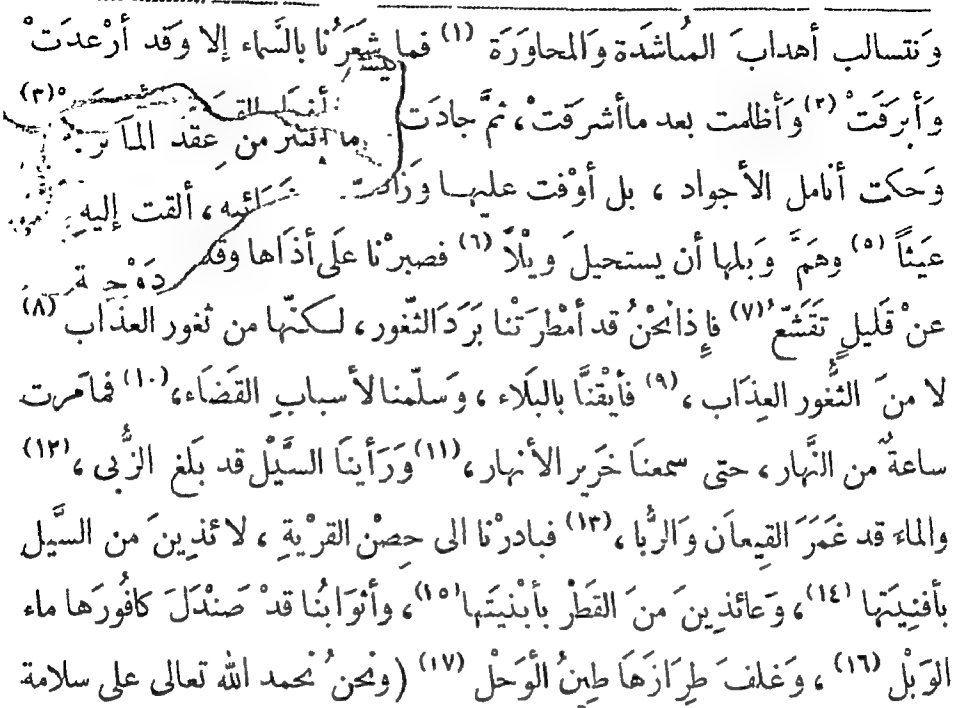 وَنتسالب أهدابَ المُناشَدة وَالمحاوَرَة (١) فما شعَرْنا بالسَّماء إلا وَقد أرْعدَتْ
وَأبرَقَتْ (٢) وَأظلمت بعد ماأشرَقتْ، ثمَّ جادَت (٣)
وَحكت أنامل الأجواد ، بل أوْفت عليها وَزادت ما انتثر من عِقْد ألقت إليه
عَيناً (٥) وهَمَّ وَبلها أن يستحيلَ ويْلاً (٦) فصبرْنا عَلَى أذَاها وقد
عنْ قَليلٍ تَقَشّعُ (٧) فإِذانحْنُ قد أمْطرَتْنا بَرَدَ الثّغور، لكنّها من ثغور العذَاب (٨)
لا منَ الثُّغور العِذَاب ، (٩) فأيْقنَّا بالبَلَاء ، وَسلّمنا لأسبابِ القَضَاء، (١٠) فمامَرت
ساعةٌ من النَّهار ، حتى سمعنَا خَرَير الأنهار ، (١١) وَرَأينَا السَّيْل قد بلَغ الزُّبى ، (١٢)
والماءَ قد غَمَرَ القِيعانَ وَالرُّبا ، (١٣) فبادرْنا الى حِصْن القرْيةِ ، لائذِينَ من السَّيل
بأفنِيَتها (١٤) ، وَعائذِينَ منَ القَطْر بأبْنيَتها (١٥) ، وأثوَابُنا قدْ صَنْدَلَ كافُورَها ماء
الوَبْل (١٦) ، وَغلفَ طرَازَهَا طينُ الوَحْل (١٧) (ونحنُ نحمد الله تعالى على سلامة